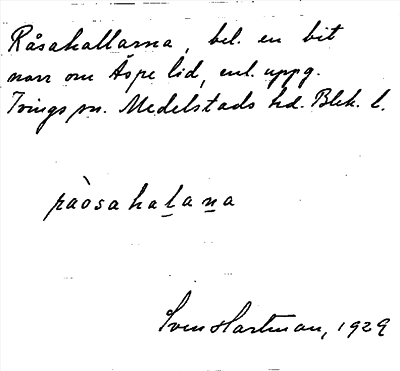 Råsahallarna, bel. en bit
norr om Äspe lid, enl. uppg.
Tvings sn. Medelstads hd. Blek. l.
råòsahalana
Sven Hartman, 1929